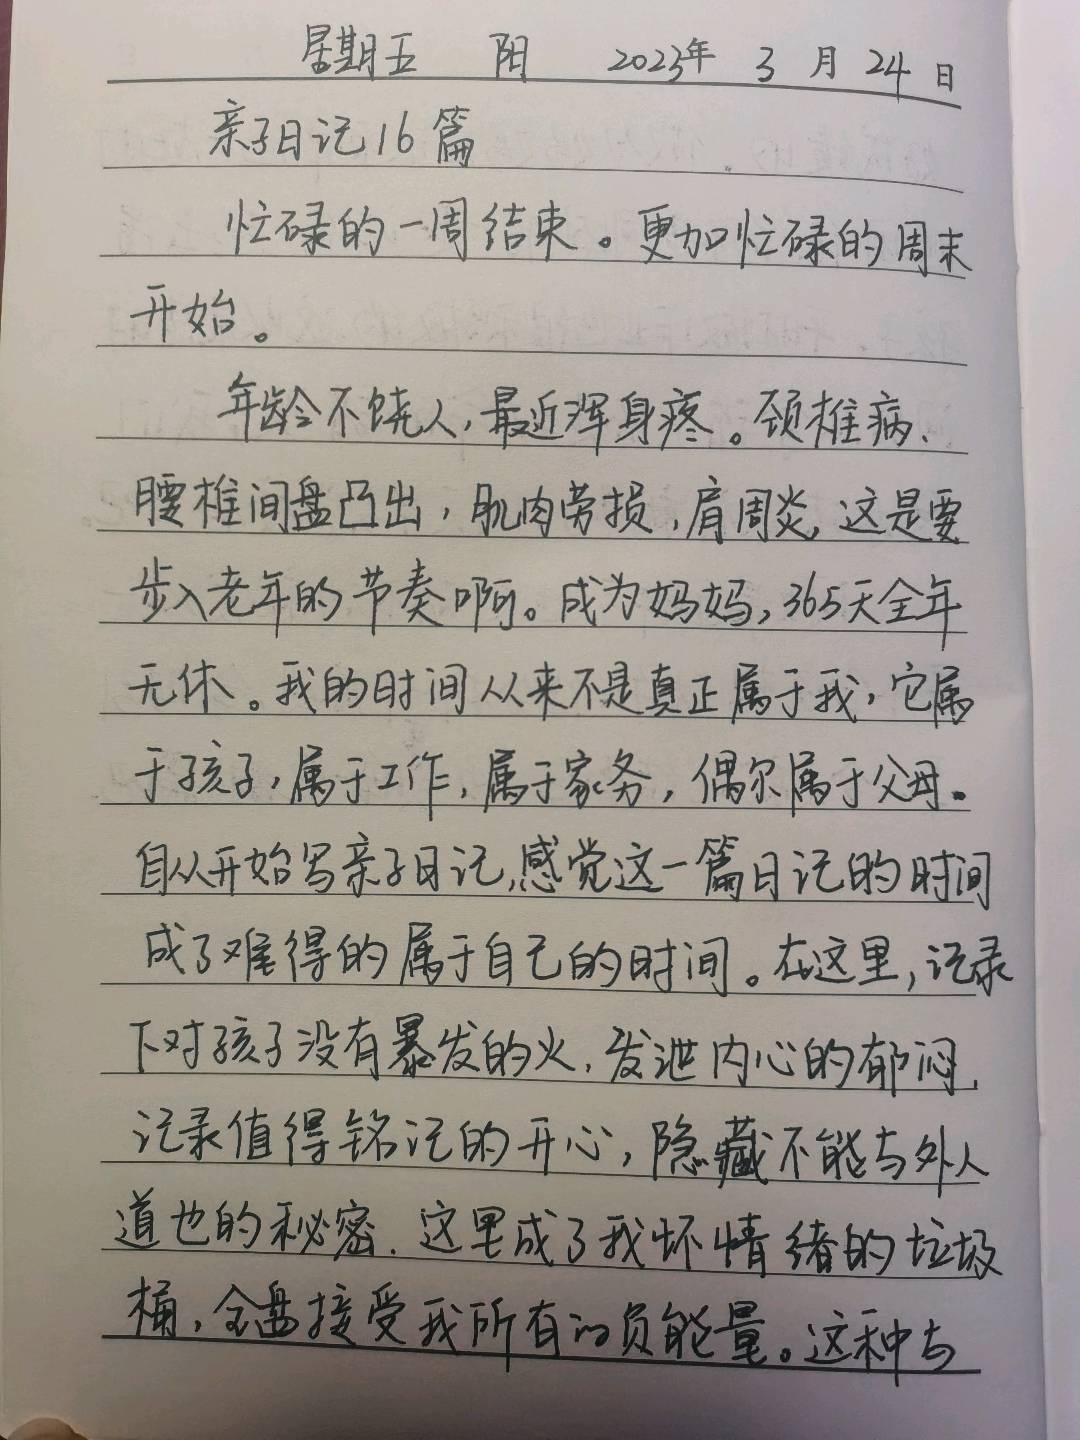 星期五 阳 2023年 3 月 24 日
亲子日记16篇
忙碌的一周结束。更加忙碌的周末
开始。
年龄不饶人,最近浑身疼。颈椎病、
腰椎间盘凸出,肌肉劳损,肩周炎,这是要
步入老年的节奏啊。成为妈妈,365天全年
无休。我的时间从来不是真正属于我,它属
于孩子,属于工作,属于家务,偶尔属于父母。
自从开始写亲子日记,感觉这一篇日记的时间
成了难得的属于自己的时间。在这里,记录
下对孩子没有暴发的火,发泄内心的郁闷,
记录值得铭记的开心,隐藏不能与外人
道也的秘密.这里成了我坏情绪的垃圾
桶,全盘接受我所有的负能量。这种与